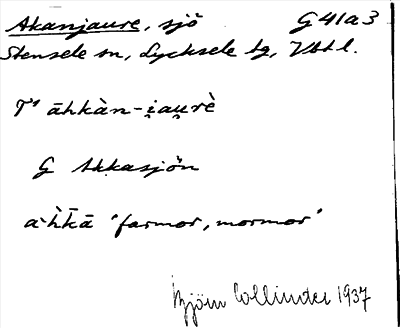 Akanjaure, sjö G41a3
Stensele sn, Lycksele tg, Vbtl.
Tˢ āhkàn-i̯au̯rè
G Akkasjön
a·h̀k̄ā "farmor, mormor"
Björn Collinder 1937